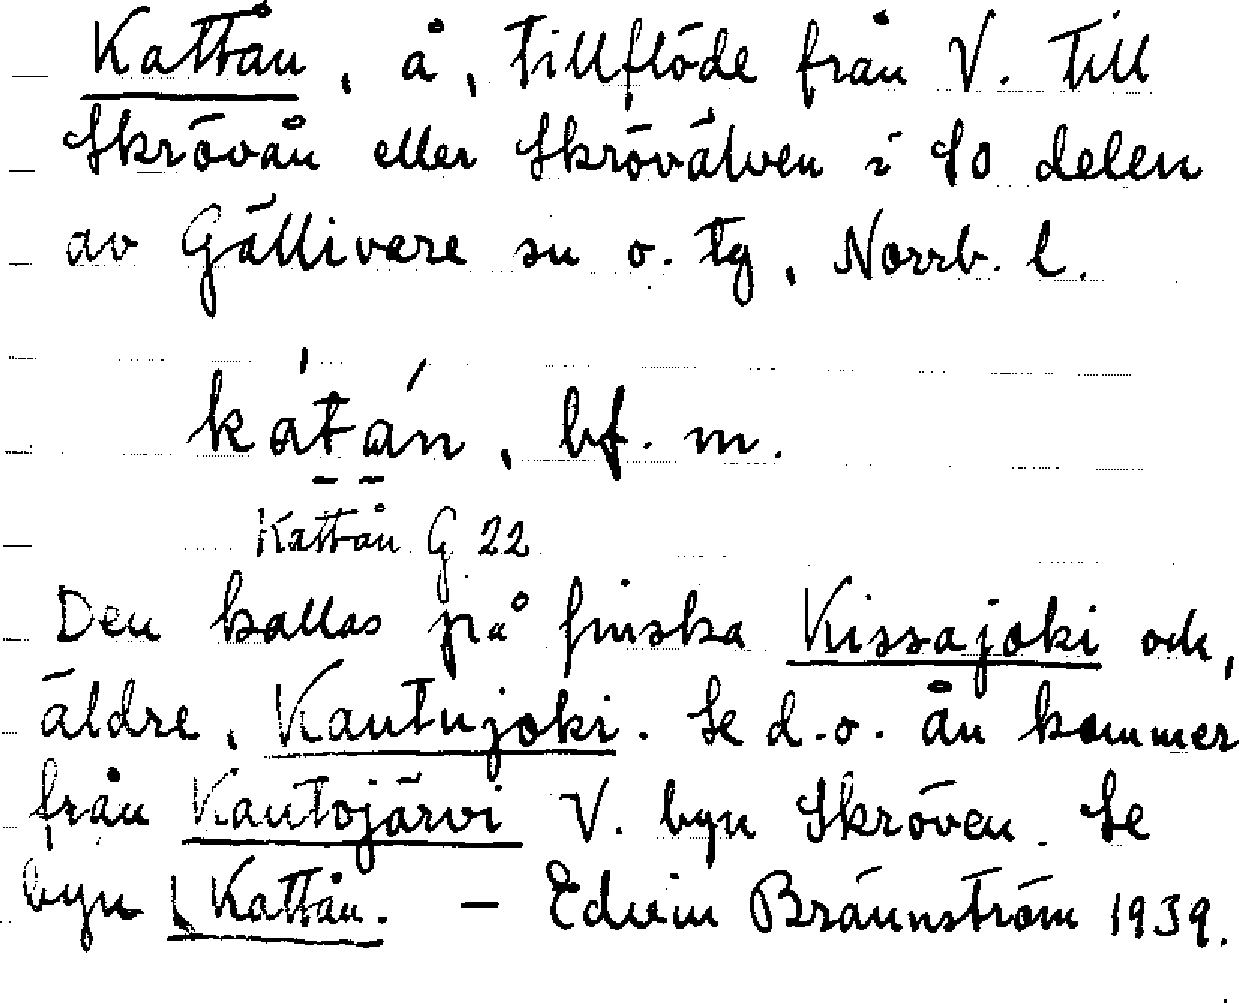 Kattån, å, tillflöde från V. till
Skrövån eller Skrövälven i SO delen
av Gällivare sn o. tg, Norrb. l.
kátán, bf. m.
Kattån G 22
Den kallas på finska Kissajoki och,
äldre, Kautujoki. Se d.o. ån kommer
från Kautojärvi V. byn Skröven. Se
byn Kattån. – Edvin Brännström 1939.